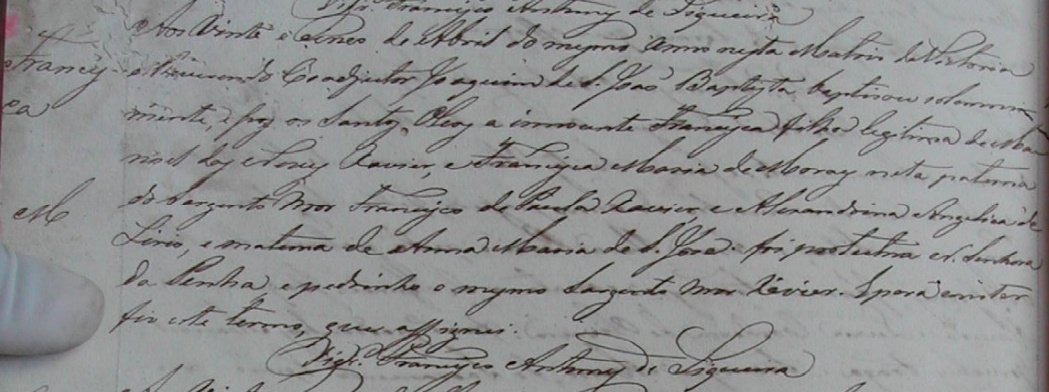 Vigr.º Francisco Antonny de Siqueira
Aos Vinte e Cinco de Abril do mesmo anno nesta Matris da Victoria
o Reverendo Coadjutor Joaquim de S. João Baptysta baptisou solemne
mente, e poz os Santos Oleos a innocente Francisca filha legitima de Ma
noel dos Xavier, e Francisca Maria de Moraes neta paterna
do Sargento Mor Francisco de Paula Xavier, e Alexandrina Angelica de
Lirio, e materna de Anna Maria de S. José foi protectora N. Senhora
da Penha, e padrinho o mesmo Sargento Mor Xavier. E para constar
fiz este termo, que assignei.
Vigr.º Francisco Antonny de Siqueira
Francis
ca
M